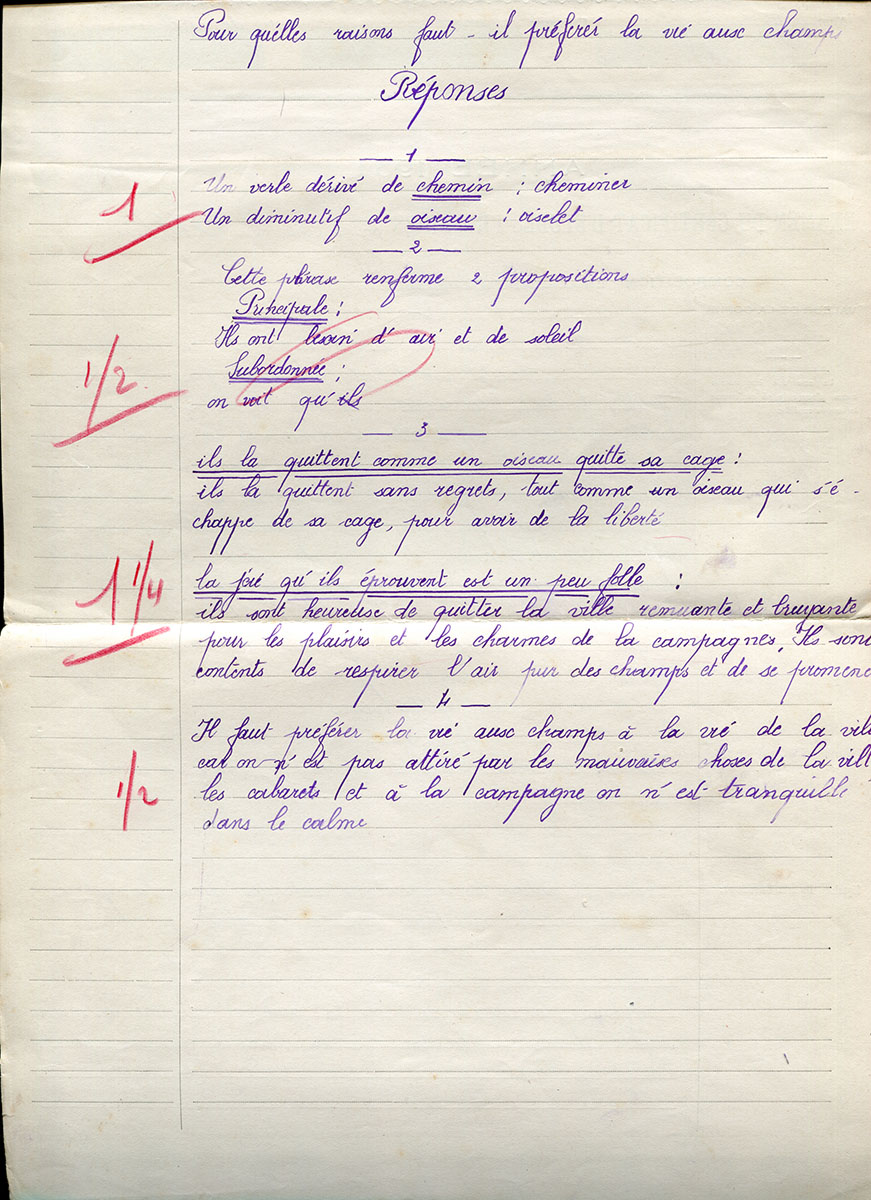 Pour quélles raisons faut-il préférés la vié aux champs
Réponses
1
Un verbe dérivé de chemin : cheminer
1
Un diminutif de oiseau : oiselet
2
Cette phrase renferme 2 propositions
Principale :
Ils ont besoin d'air et de soleil
1/2
Subordonnée :
on voit qu'ils
3
ils la quittent comme un oiseau quitte sa cage :
ils la quittent sans regrets, tout comme un oiseau qui s'é-
chappe de sa cage, pour avoir de la liberté
1 1/4
la joié qu'ils éprouvent est un peu folle :
ils sont heureuse de quitter la ville remuante et bruyante
pour les plaisirs et les charmes de la campagnes, Ils sont
contents de respirer l'air pur des champs et de se promene
4
Il faut préférer la vié aux champs à la vié de la vill
car on n'est pas attéré par les mauvaises choses de la vill
1/2
les cabarets et à la campagne on n'est tranquille
dans le calme